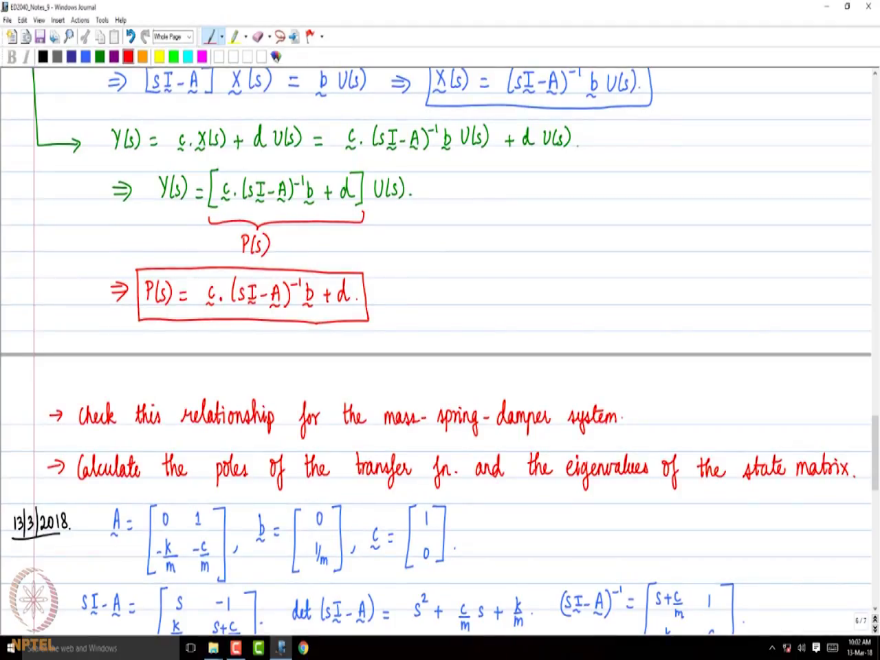 ED2040_Notes_9 - Windows Journal
File Edit View Insert Actions Tools Help
Whole Page
B I
⇒ [sI-A] X(s) = b U(s) ⇒ X(s) = (sI-A)⁻¹ b U(s).
Y(s) = c.X(s) + d U(s) = c.(sI-A)⁻¹b U(s) + d U(s).
⇒ Y(s) = [c.(sI-A)⁻¹b + d] U(s).
P(s)
⇒ P(s) = c.(sI-A)⁻¹b + d.
→ Check this relationship for the mass-spring-damper system.
→ Calculate the poles of the transfer fn. and the eigenvalues of the state matrix.
13/3/2018.
A = [0 1; -k/m -c/m], b = [0; 1/m], c = [1; 0].
sI-A = [s -1; k s+c]. det(sI-A) = s² + c/m s + k/m. (sI-A)⁻¹ = [s+c/m 1
6/7
NPTEL
the web and Windows
10:02 AM
13-Mar-18